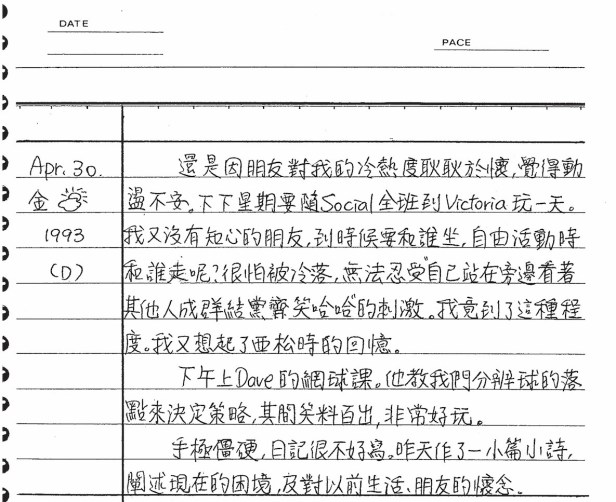 DATE
PACE
Apr. 30. 還是因朋友對我的冷熱度耿耿於懷,覺得動
金 盪不安。下下星期要隨Social全班到Victoria玩一天。
1993 我又沒有知心的朋友,到時候要和誰坐,自由活動時
(D) 和誰走呢?很怕被冷落,無法忍受"自己站在旁邊看著
其他人成群結黨齊笑哈哈"的刺激。我竟到了這種程
度。我又想起了西松時的回憶。
下午上Dave的網球課。他教我們分辨球的落
點來決定策略,其間笑料百出,非常好玩。
手極僵硬,日記很不好寫。昨天作了一小篇小詩,
闡述現在的困境,反對以前生活、朋友的懷念。